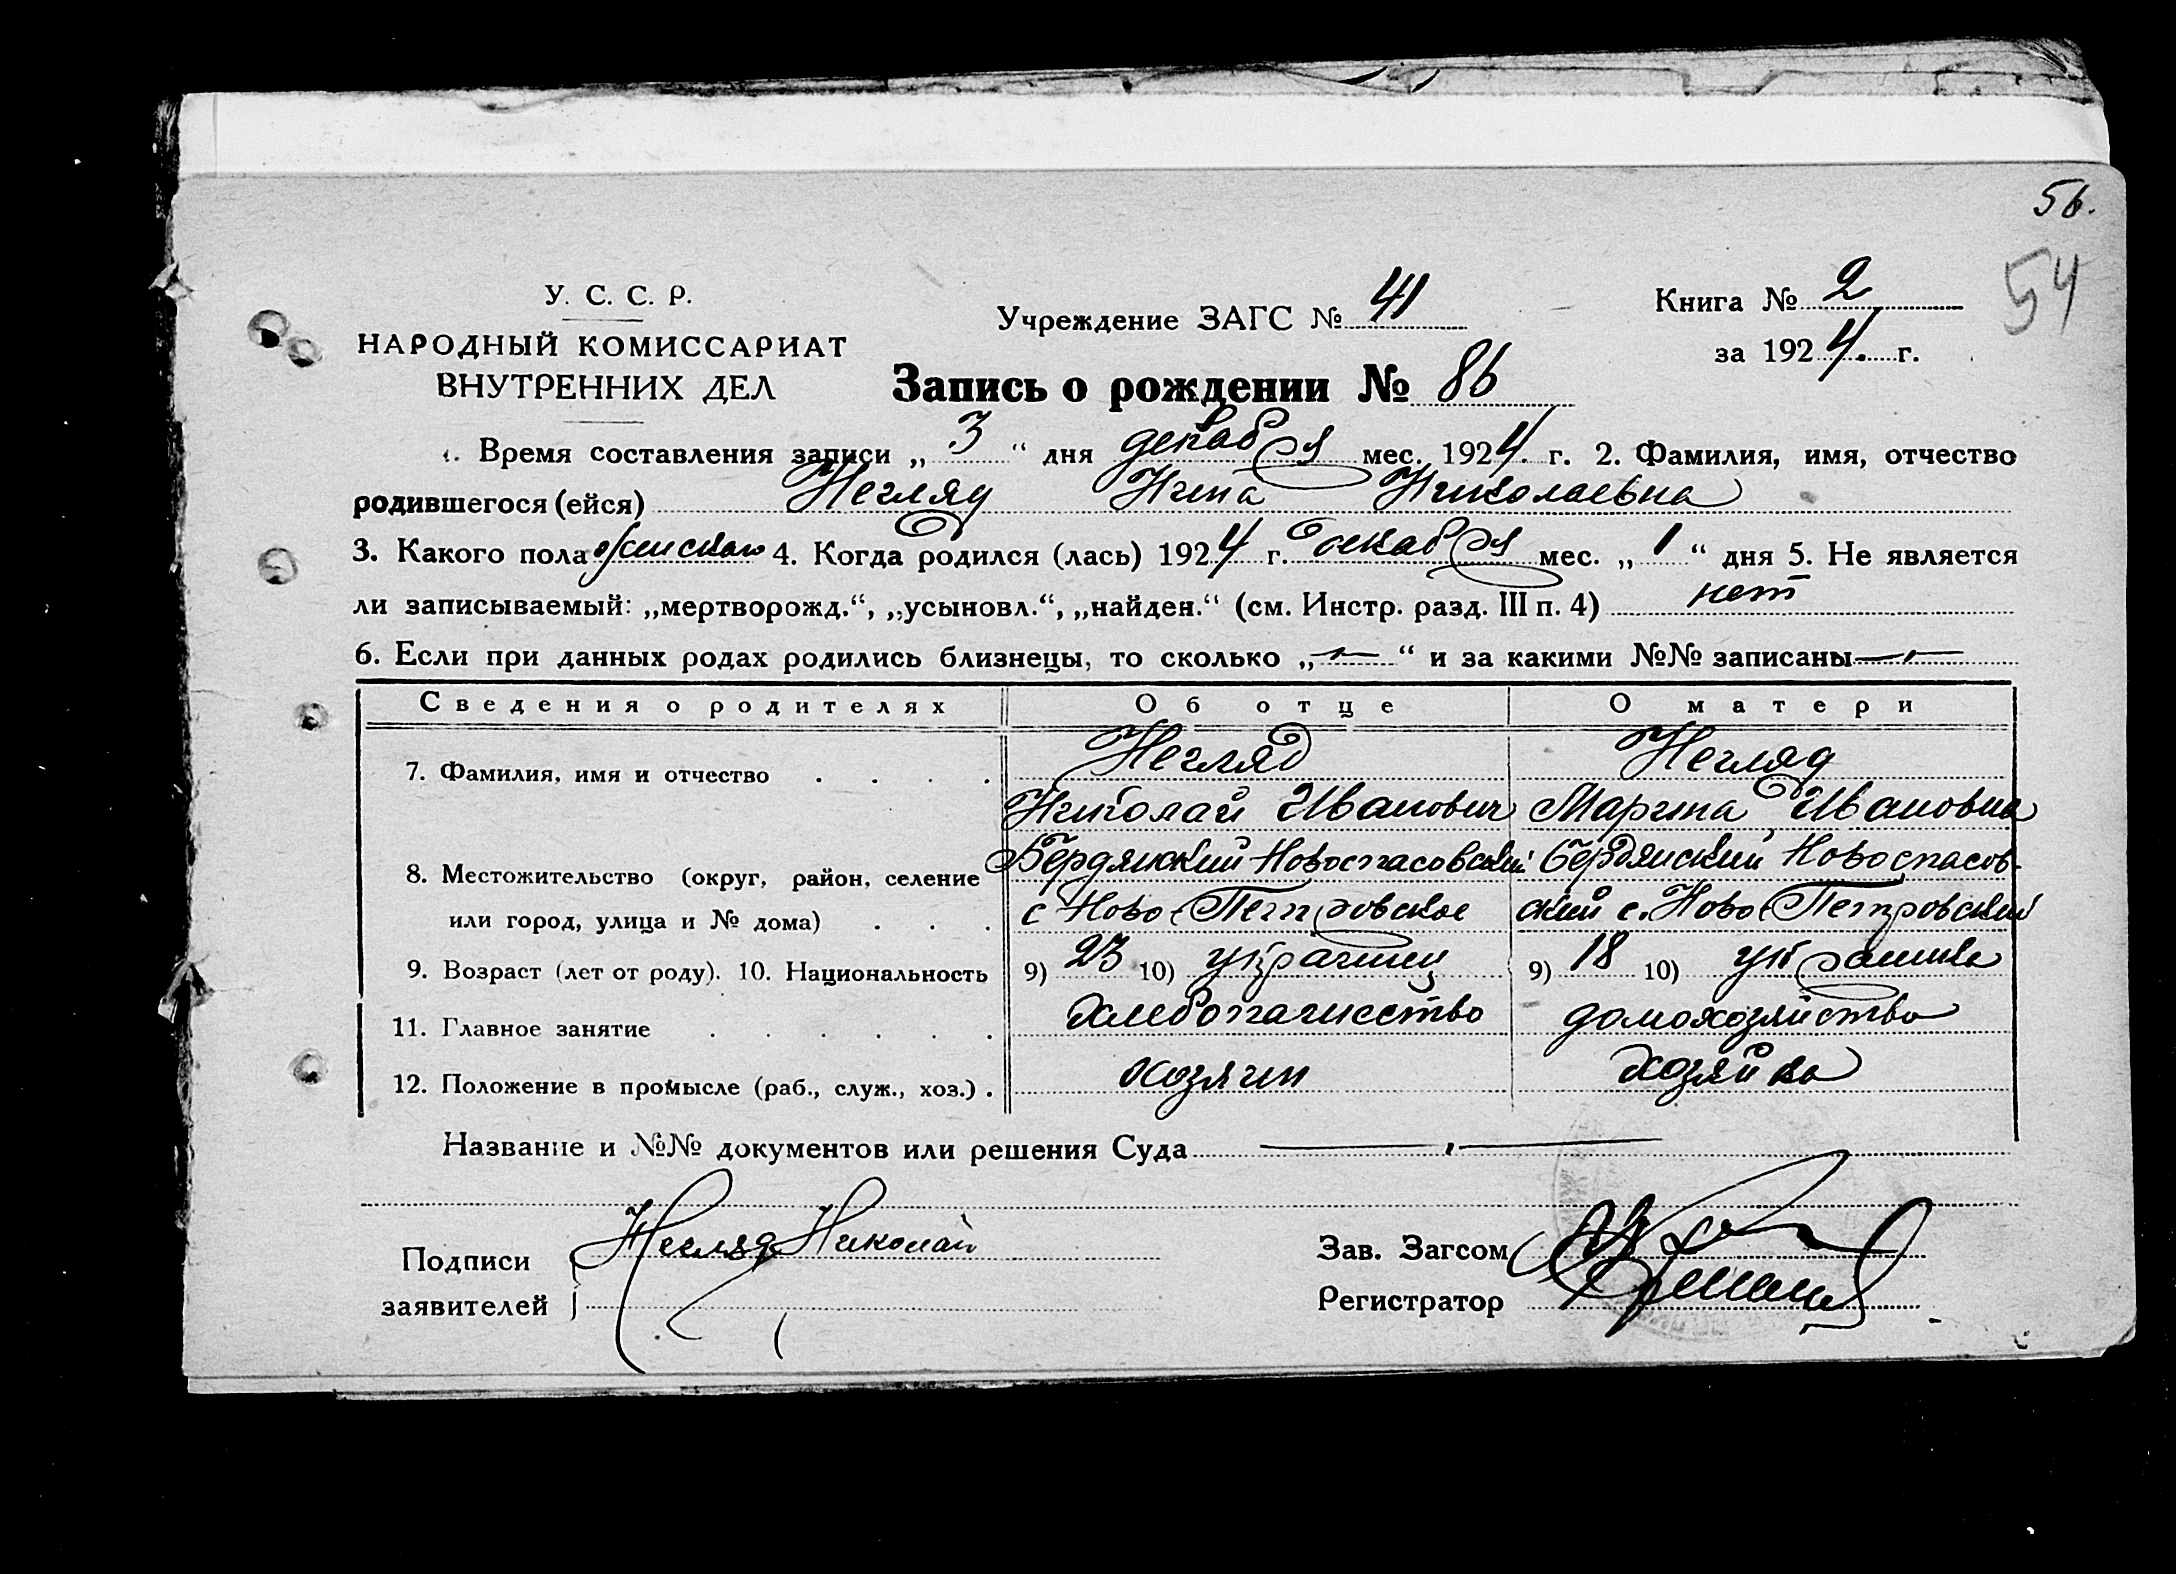 56.
54
У. С. С. Р.
НАРОДНЫЙ КОМИССАРИАТ
ВНУТРЕННИХ ДЕЛ
Учреждение ЗАГС № 41
Книга № 2
за 1924. г.
Запись о рождении № 86
1. Время составления записи „ 3 “ дня декабря мес. 1924. г. 2. Фамилия, имя, отчество
родившегося (ейся) Негляд Нина Николаевна
3. Какого пола женскаго 4. Когда родился (лась) 1924 г. декабря мес. „ 1 “ дня 5. Не является
ли записываемый: „мертворожд.“, „усыновл.“, „найден.“ (см. Инстр. разд. III п. 4) нет
6. Если при данных родах родились близнецы, то сколько „ — “ и за какими №№ записаны —
Сведения о родителях Об отце О матери
7. Фамилия, имя и отчество . . . . Негляд Негляд
Николай Иванович Марина Ивановна
8. Местожительство (округ, район, селение Бердянский Новоспасовский Бердянский Новоспасов-
или город, улица и № дома) . . . с Ново-Петровское ский с. Ново-Петровский
9. Возраст (лет от роду). 10. Национальность 9) 23 10) украинец 9) 18 10) украинка
11. Главное занятие . . . . . хлебопашество домохозяйство
12. Положение в промысле (раб., служ., хоз.) . хозяин хозяйка
Название и №№ документов или решения Суда —
Подписи Негляд Николай
заявителей
Зав. Загсом
Регистратор